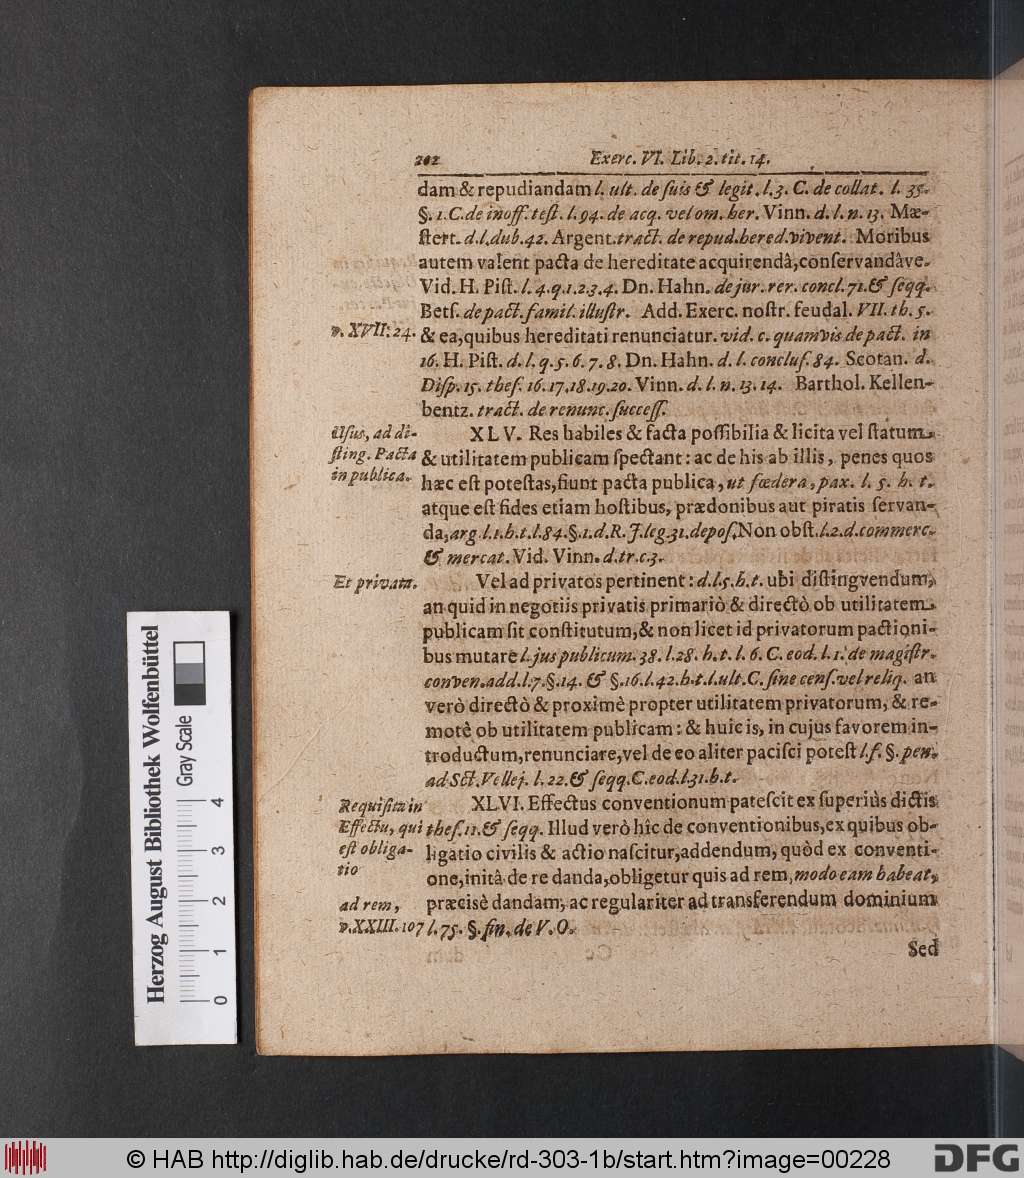 202 Exerc. VI. Lib. 2. tit. 14.
dam & repudiandam l. ult. de ſuis & legit. l. 3. C. de collat. l. 35.
§. 1. C. de inoff. teſt. l. 94. de acq. vel om. her. Vinn. d. l. n. 13. Mæ-
ſtert. d. l. dub. 42. Argent. tract. de repud. hered. vivent. Moribus
autem valent pacta de hereditate acquirendâ, conſervandâve.
Vid. H. Piſt. l. 4. q. 1. 2. 3. 4. Dn. Hahn. de jur. rer. concl. 71. & ſeqq.
Betſ. de pact. famil. illuſtr. Add. Exerc. noſtr. feudal. VII. th. 5.
v. XVII. 24. & ea, quibus hereditati renunciatur. vid. c. quamvis de pact. in
16. H. Piſt. d. l. q. 5. 6. 7. 8. Dn. Hahn. d. l. concluſ. 84. Scotan. d.
Diſp. 15. theſ. 16. 17. 18. 19. 20. Vinn. d. l. n. 13. 14. Barthol. Kellen-
bentz. tract. de renunc. ſucceſſ.
Uſus, ad di-
ſting. Pacta
in publica.
XLV. Res habiles & facta poſſibilia & licita vel ſtatum
& utilitatem publicam ſpectant: ac de his ab illis, penes quos
hæc eſt poteſtas, fiunt pacta publica, ut fœdera, pax. l. 5. h. t.
atque eſt fides etiam hoſtibus, prædonibus aut piratis ſervan-
da, arg. l. 1. h. t. l. 84. §. 1. d. R. J. leg. 31. depoſ. Non obſt. l. 2. d. commerc.
& mercat. Vid. Vinn. d. tr. c. 3.
Et privata.
Vel ad privatos pertinent: d. l. 5. h. t. ubi diſtingvendum,
an quid in negotiis privatis primariò & directò ob utilitatem
publicam ſit conſtitutum, & non licet id privatorum pactioni-
bus mutare l. jus publicum. 38. l. 28. h. t. l. 6. C. eod. l. 1. de magiſtr.
conven. add. l. 7. §. 14. & §. 16. l. 42. h. t. l. ult. C. ſine cenſ. vel reliq. an
verò directò & proximè propter utilitatem privatorum, & re-
motè ob utilitatem publicam: & huic is, in cujus favorem in-
troductum, renunciare, vel de eo aliter paciſci poteſt l. f. §. pen.
ad Sct. Vellej. l. 22. & ſeqq. C. eod. l. 31. h. t.
Requiſita in
Effectu, qui
eſt obliga-
tio
ad rem,
v. XXIII. 107
XLVI. Effectus conventionum pateſcit ex ſuperiùs dictis
theſ. 11. & ſeqq. Illud verò hîc de conventionibus, ex quibus ob-
ligatio civilis & actio naſcitur, addendum, quòd ex conventi-
one, initâ de re danda, obligetur quis ad rem, modo eam habeat,
præcisè dandam, ac regulariter ad transferendum dominium
l. 75. §. fin. de V. O.
Sed
Herzog August Bibliothek Wolfenbüttel
Gray Scale
0 1 2 3 4
© HAB http://diglib.hab.de/drucke/rd-303-1b/start.htm?image=00228
DFG